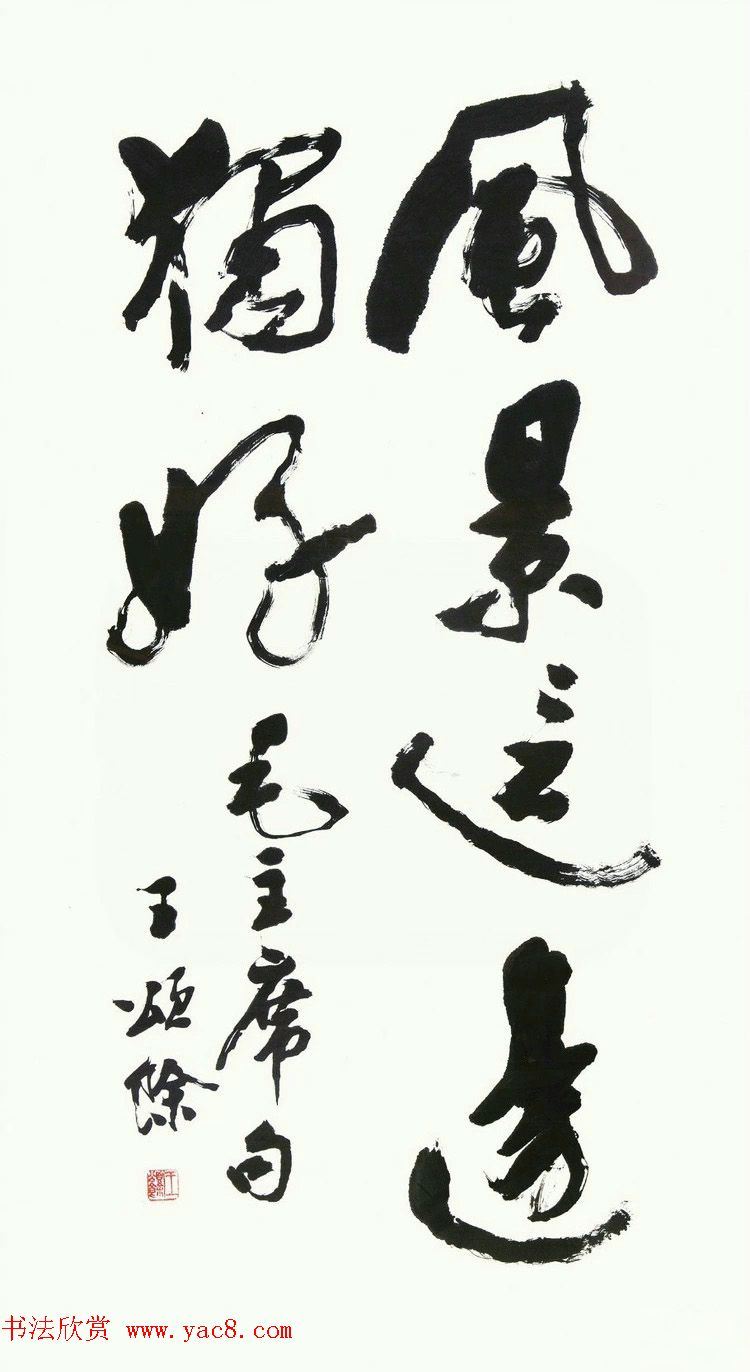 風景這邊
獨好
毛主席句
王頌餘
书法欣赏 www.yac8.com